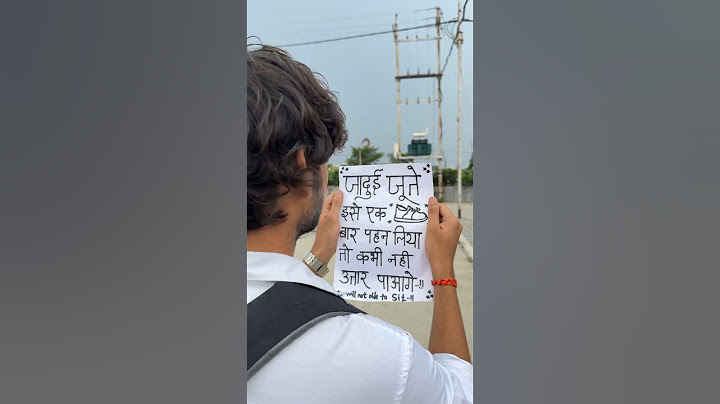 जादुई जूते
इसे एक
बार पहन लिया
तो कभी नही
उतार पाओगे-!!
will not able to Sit-!!